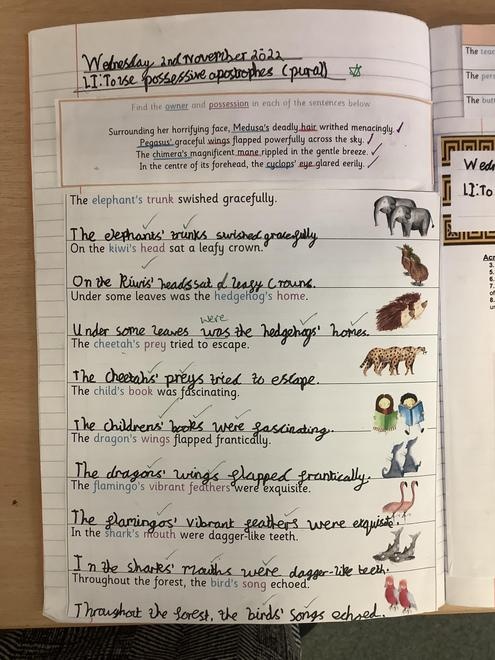 Wednesday 2nd November 2022
LI: To use possessive apostrophes (plural)
Find the owner and possession in each of the sentences below
Surrounding her horrifying face, Medusa's deadly hair writhed menacingly.
Pegasus' graceful wings flapped powerfully across the sky.
The chimera's magnificent mane rippled in the gentle breeze.
In the centre of its forehead, the cyclops' eye glared eerily.
The elephant's trunk swished gracefully.
The elephants' trunks swished gracefully
On the kiwi's head sat a leafy crown.
On the Kiwis' heads sat leafy crowns.
Under some leaves was the hedgehog's home.
were
Under some leaves was the hedgehogs' homes.
The cheetah's prey tried to escape.
The cheetahs' preys tried to escape.
The child's book was fascinating.
The childrens' books were fascinating.
The dragon's wings flapped frantically.
The dragons' wings flapped frantically.
The flamingo's vibrant feathers were exquisite.
The flamingos' vibrant feathers were exquisite.
In the shark's mouth were dagger-like teeth.
In the sharks' mouths were dagger-like teeth.
Throughout the forest, the bird's song echoed.
Throughout the forest, the birds' songs echoed.
The tea
The per
The but
Wedn
LI: To